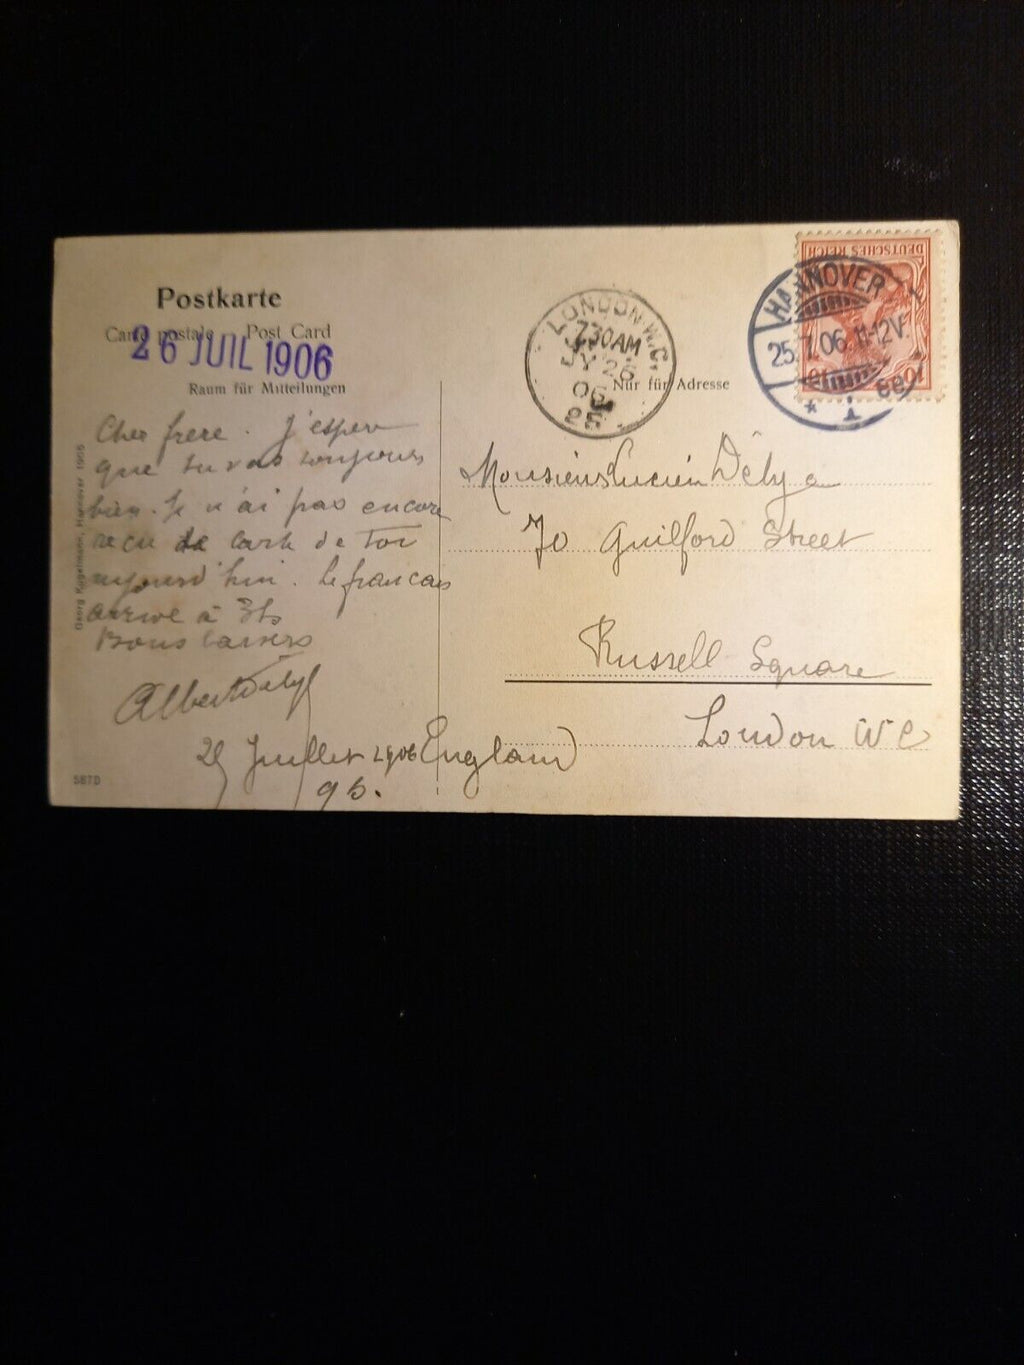 Postkarte
Carte postale Post Card
26 JUIL 1906
Raum für Mitteilungen
Cher frere. J'espere
que tu vas toujours
bien. Je n'ai pas encore
recu de carte de Toi
aujourd'hui. Le francais
arrive à 3hs
Bons baisers
Albert Dély
25 Juillet 1906
96.
England
Georg Kugelmann, Hannover 1905
5870
LONDON.W.C.
7.30AM
JY 26
06
25
Nur für Adresse
DEUTSCHES REICH
10
HANNOVER
25.7.06.11-12V.
* 1
Monsieur Lucien Dély
70 Guilford Street
Russell Square
London W C